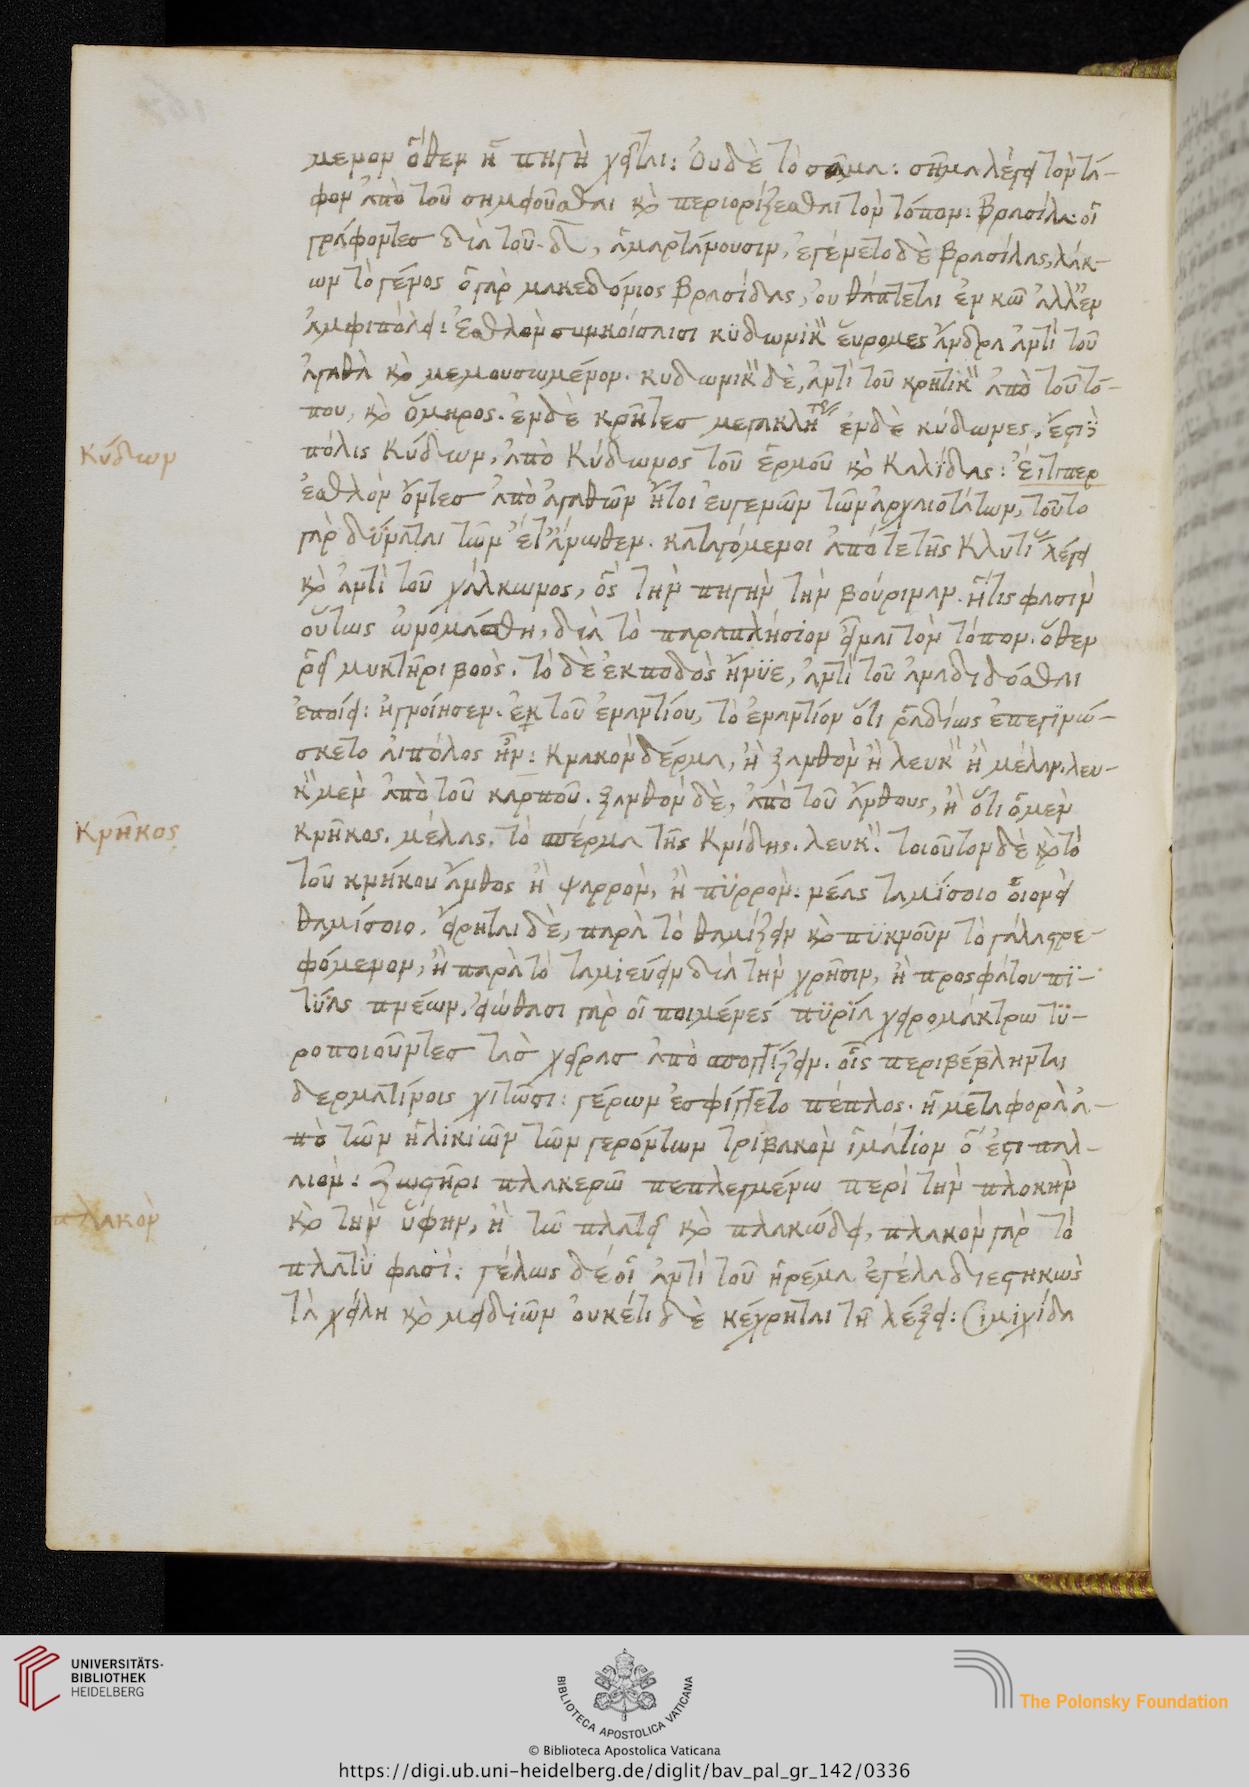 μενον ὅθεν ἡ πηγὴ χεῖται: Οὐδὲ τὸ σᾶμα: σῆμα λέγει τὸν τά-
φον ἀπὸ τοῦ σημειοῦσθαι κὸ περιορίζεσθαι τὸν τόπον: Βρασίλα: οἱ
γράφοντες διὰ τοῦ δ, ἁμαρτάνουσιν, ἐγένετο δὲ Βρασίλας, λάκ-
ων τὸ γένος ὁ γὰρ μακεδόνιος Βρασίδας, οὐ θάπτεται ἐν κῶ ἀλλ' ἐν
ἀμφιπόλει: Ἐσθλὸν συμμοίσαισι κϋδωνικ εὕρομες ἄνδρα ἀντὶ τοῦ
ἀγαθὰ κὸ μεμουσωμένον. κυδωνικ δὲ, ἀντὶ τοῦ κρητικ ἀπὸ τοῦ τό-
που, κὸ ὅμηρος. ἐν δὲ κρῆτες μεγακλη ἐν δὲ κύδωνες. ἔστι
Κύδων
πόλις Κύδων, ἀπὸ Κύδωνος τοῦ ἑρμοῦ κὸ : Εἴτιπερ
ἐσθλὸν ὄντες ἀπὸ ἀγαθῶν ἤτοι εὐγενῶν τῶν ἀρχαιοτάτων, τοῦτο
γὰρ δύναται τῶν ἔτ' ἄνωθεν. καταγόμενοι ἀπό τε τῆς Κλυτί λέγει
κὸ ἀντὶ τοῦ χάλκωνος, ὃς τὴν πηγὴν τὴν βούριναν. ἥτις φασιν
οὕτως ὠνομάσθη, διὰ τὸ παραπλήσιον εἶναι τὸν τόπον. ὅθεν
ῥεῖ μυκτῆρι βοὸς. τὸ δὲ ἐκ ποδὸς ἤνϋε, ἀντὶ τοῦ ἀναδιδόσθαι
ἐποίει: ἠγνοίησεν. ἐκ τοῦ ἐναντίου, τὸ ἐναντίον ὅτι ῥαδίως ἐπεγϊνώ-
σκετο αἰπόλος ἦν: Κνακὸν δέρμα, ἢ ξανθὸν ἢ λευκ ἢ μέλαν. λευ-
κ μεν ἀπὸ τοῦ καρποῦ. ξανθὸν δὲ, ἀπὸ τοῦ ἄνθους, ἢ ὅτι ὁ μεν
Κνῆκος
κνῆκος. μέλας. τὸ σπέρμα τῆς Κνίδης. λευκ. τοιοῦτον δὲ κὸ τὸ
τοῦ κνήκου ἄνθος ἢ ψαρρὸν, ἢ πϋρρὸν: νέας ταμίσοιο οἱονεὶ
θαμίσοιο. εἴρηται δὲ, παρὰ τὸ θαμίζειν κὸ πϋκνοῦν τὸ γάλα τρε-
φόμενον, ἢ παρὰ τὸ ταμιεύειν διὰ τὴν χρῆσιν, ἢ προσφάτου πϊ-
τϋίας πνέων. εἰώθασι γὰρ οἱ ποιμένες πϋρϊᾶ χειρομάκτρω τϋ-
ροποιοῦντες τὰς χεῖρας ἀπὸ σπογγίζειν. οἷς περιβέβληνται
δερματίνοις χιτῶσι: γέρων ἐσφίγγετο πέπλος. ἡ μεταφορὰ ἀ-
πὸ τῶν ἡλικιῶν τῶν γερόντων τρίβακὸν ἱμάτιον ὅ ἐστι παλ-
λιον: Ζωστῆρι πλακερῶ πεπλεγμένω περὶ τὴν πλοκὴν
πλακὸν
κὸ τὴν ὕφην, ἢ τῶ πλατεῖ κὸ πλακώδει, πλακὸν γὰρ τὸ
πλατὺ φασὶ: γέλως δέ οἱ ἀντὶ τοῦ ἠρέμα ἐγέλα διεστηκὼς
τὰ χείλη κὸ μειδιῶν οὐκέτι δὲ κέχρηται τῆ λέξει: Σιμιχίδα
UNIVERSITÄTS-
BIBLIOTHEK
HEIDELBERG
BIBLIOTECA APOSTOLICA VATICANA
The Polonsky Foundation
© Biblioteca Apostolica Vaticana
https://digi.ub.uni-heidelberg.de/diglit/bav_pal_gr_142/0336